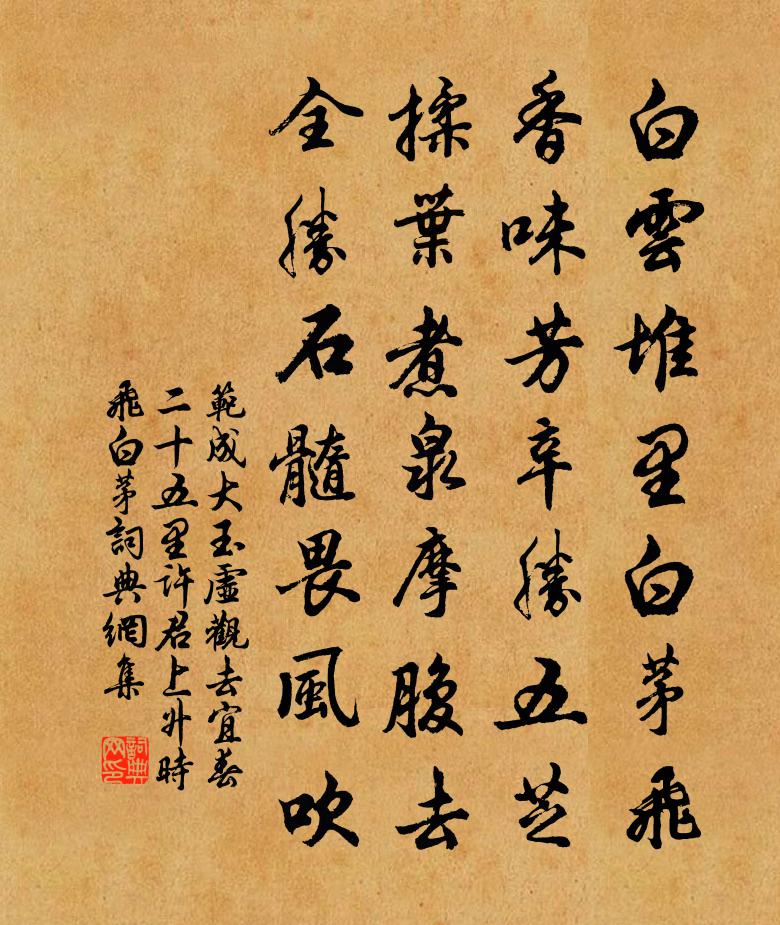 白雲堆里白茅飛
香味芳辛勝五芝
揉葉煮泉摩腹去
全勝石髓畏風吹
範成大玉虛觀去宜春
二十五里許君上升時
飛白茅詞典網集
詞典網印